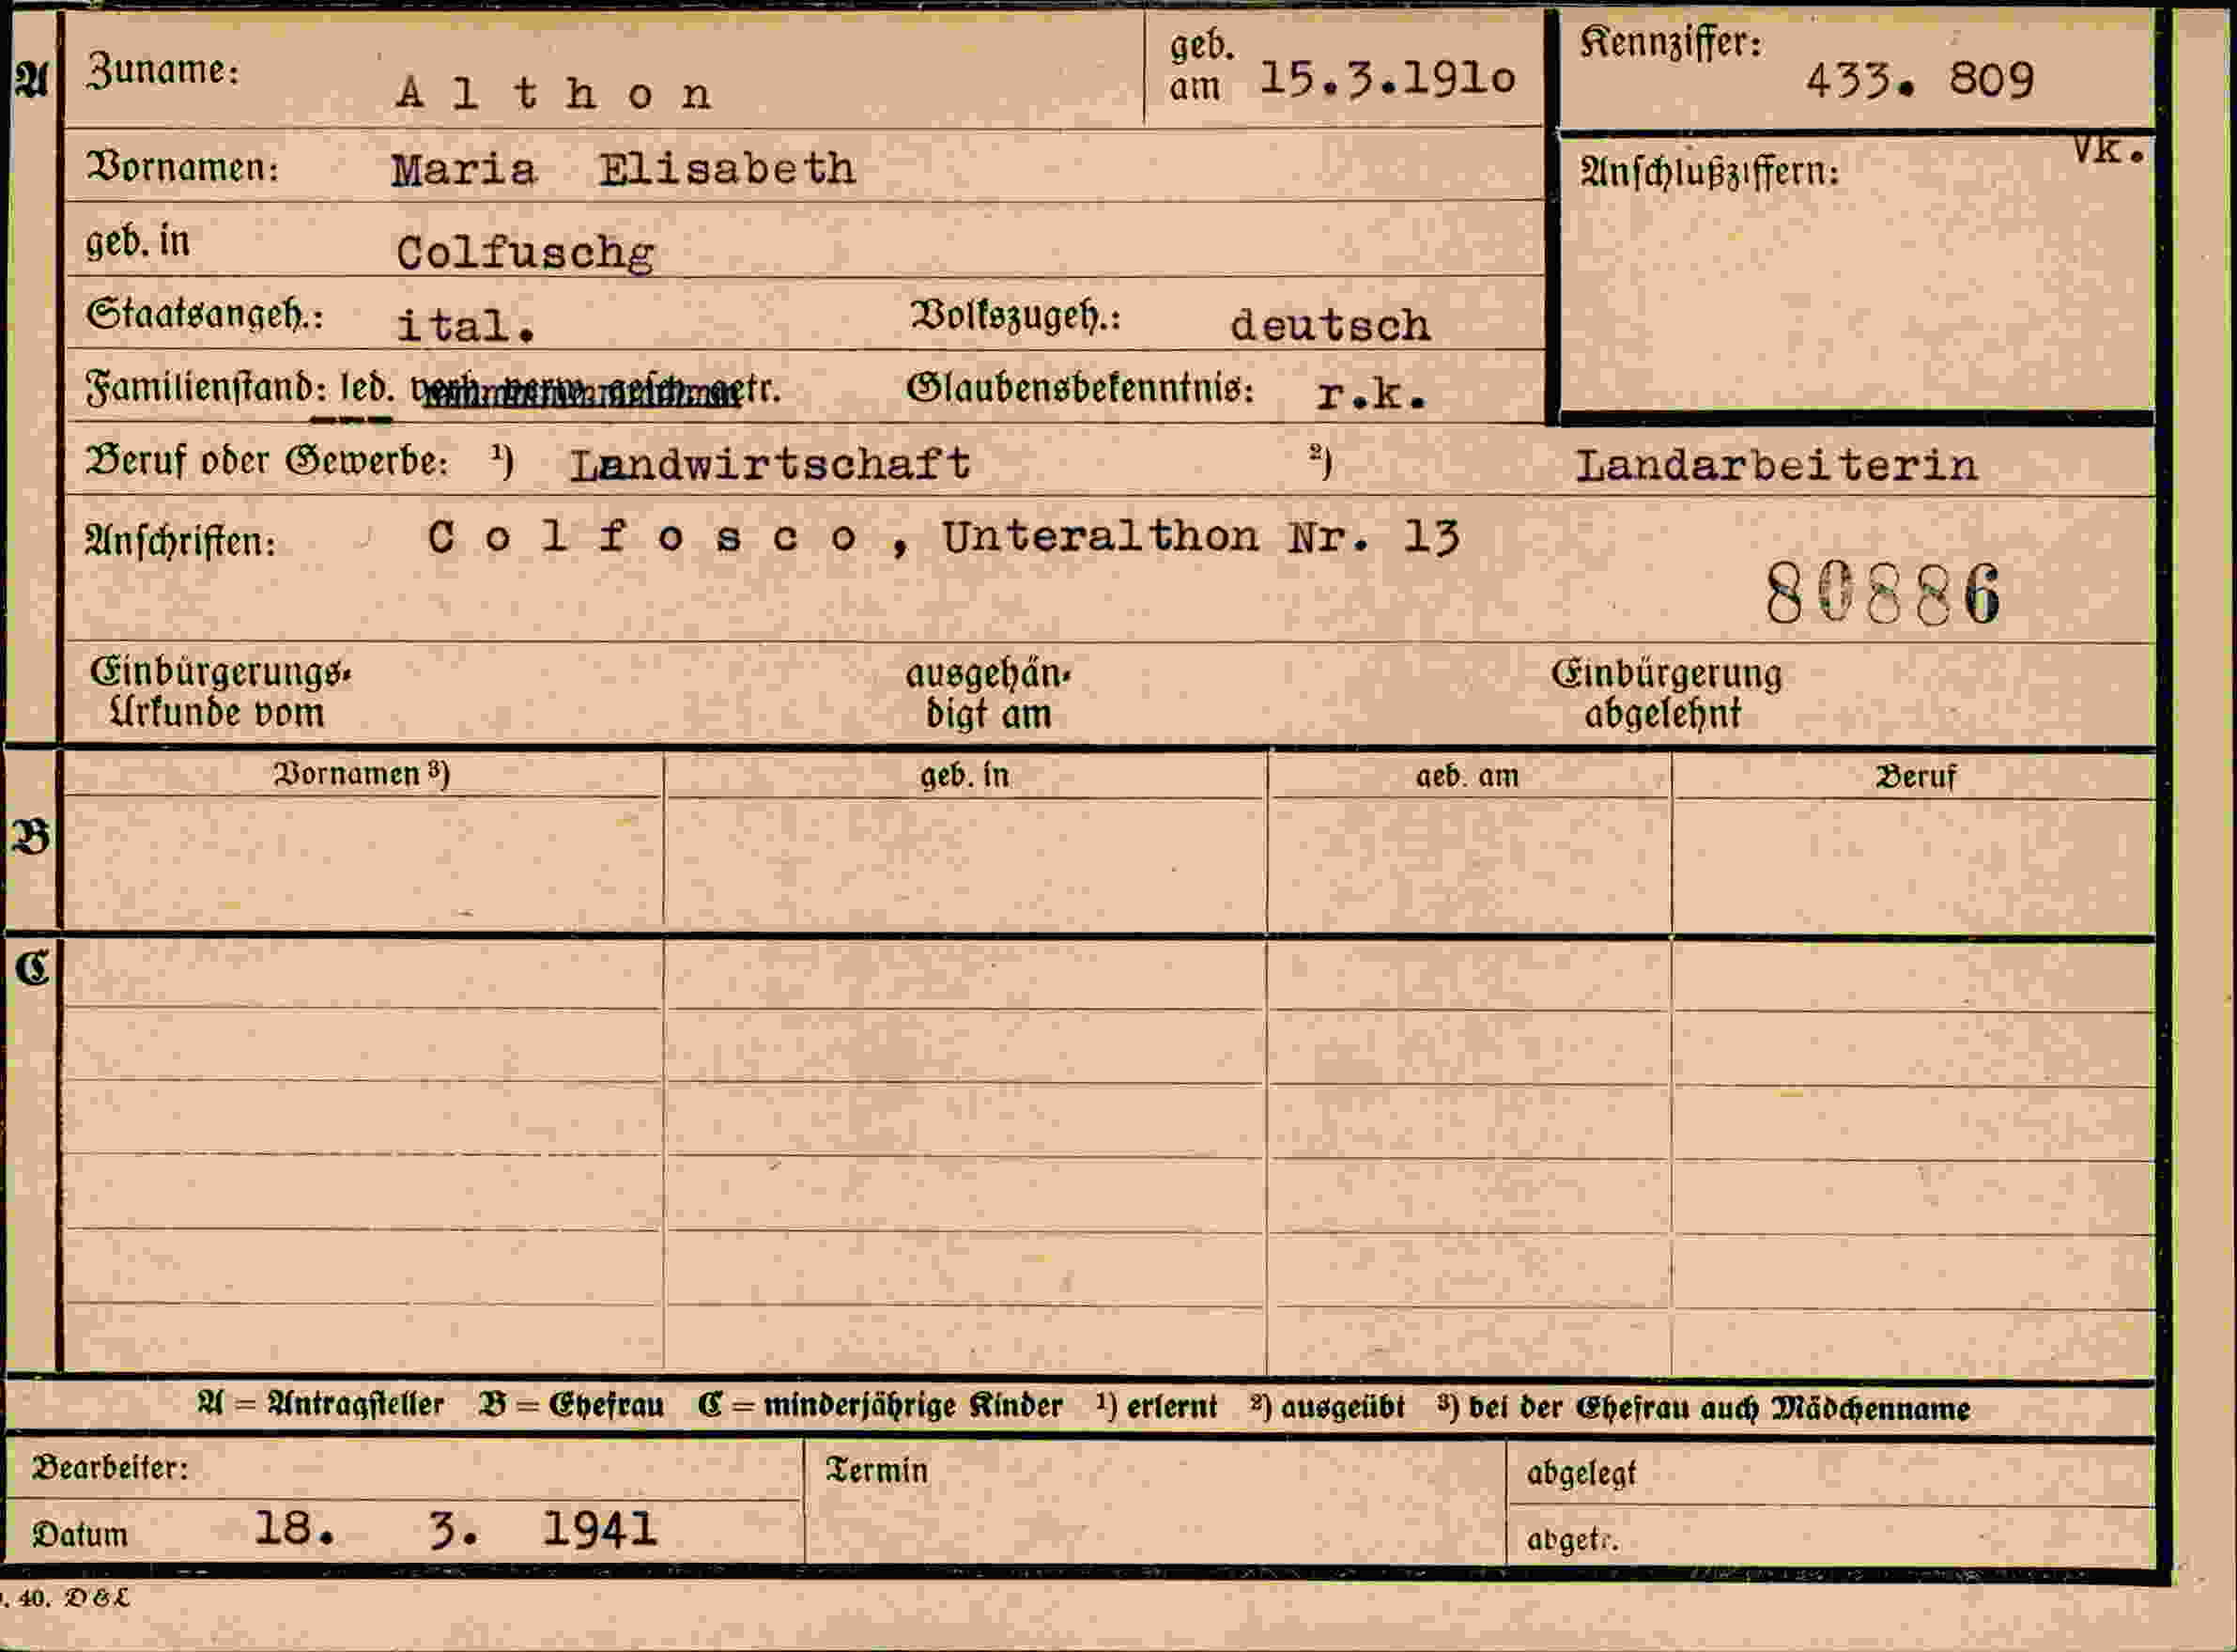 A Zuname: A l t h o n geb. am 15.3.191o Kennziffer: 433. 809
Vornamen: Maria Elisabeth Anschlußziffern: Vk.
geb. in Colfuschg
Staatsangeh.: ital. Volkszugeh.: deutsch
Familienstand: led. getr. Glaubensbekenntnis: r.k.
Beruf oder Gewerbe: ¹) Landwirtschaft ²) Landarbeiterin
Anschriften: C o l f o s c o , Unteralthon Nr. 13
80886
Einbürgerungs- ausgehän- Einbürgerung
Urkunde vom digt am abgelehnt
B Vornamen ³) geb. in geb. am Beruf
C
A = Antragsteller B = Ehefrau C = minderjährige Kinder ¹) erlernt ²) ausgeübt ³) bei der Ehefrau auch Mädchenname
Bearbeiter: Termin abgelegt
Datum 18. 3. 1941 abgetr.
. 40. D&L